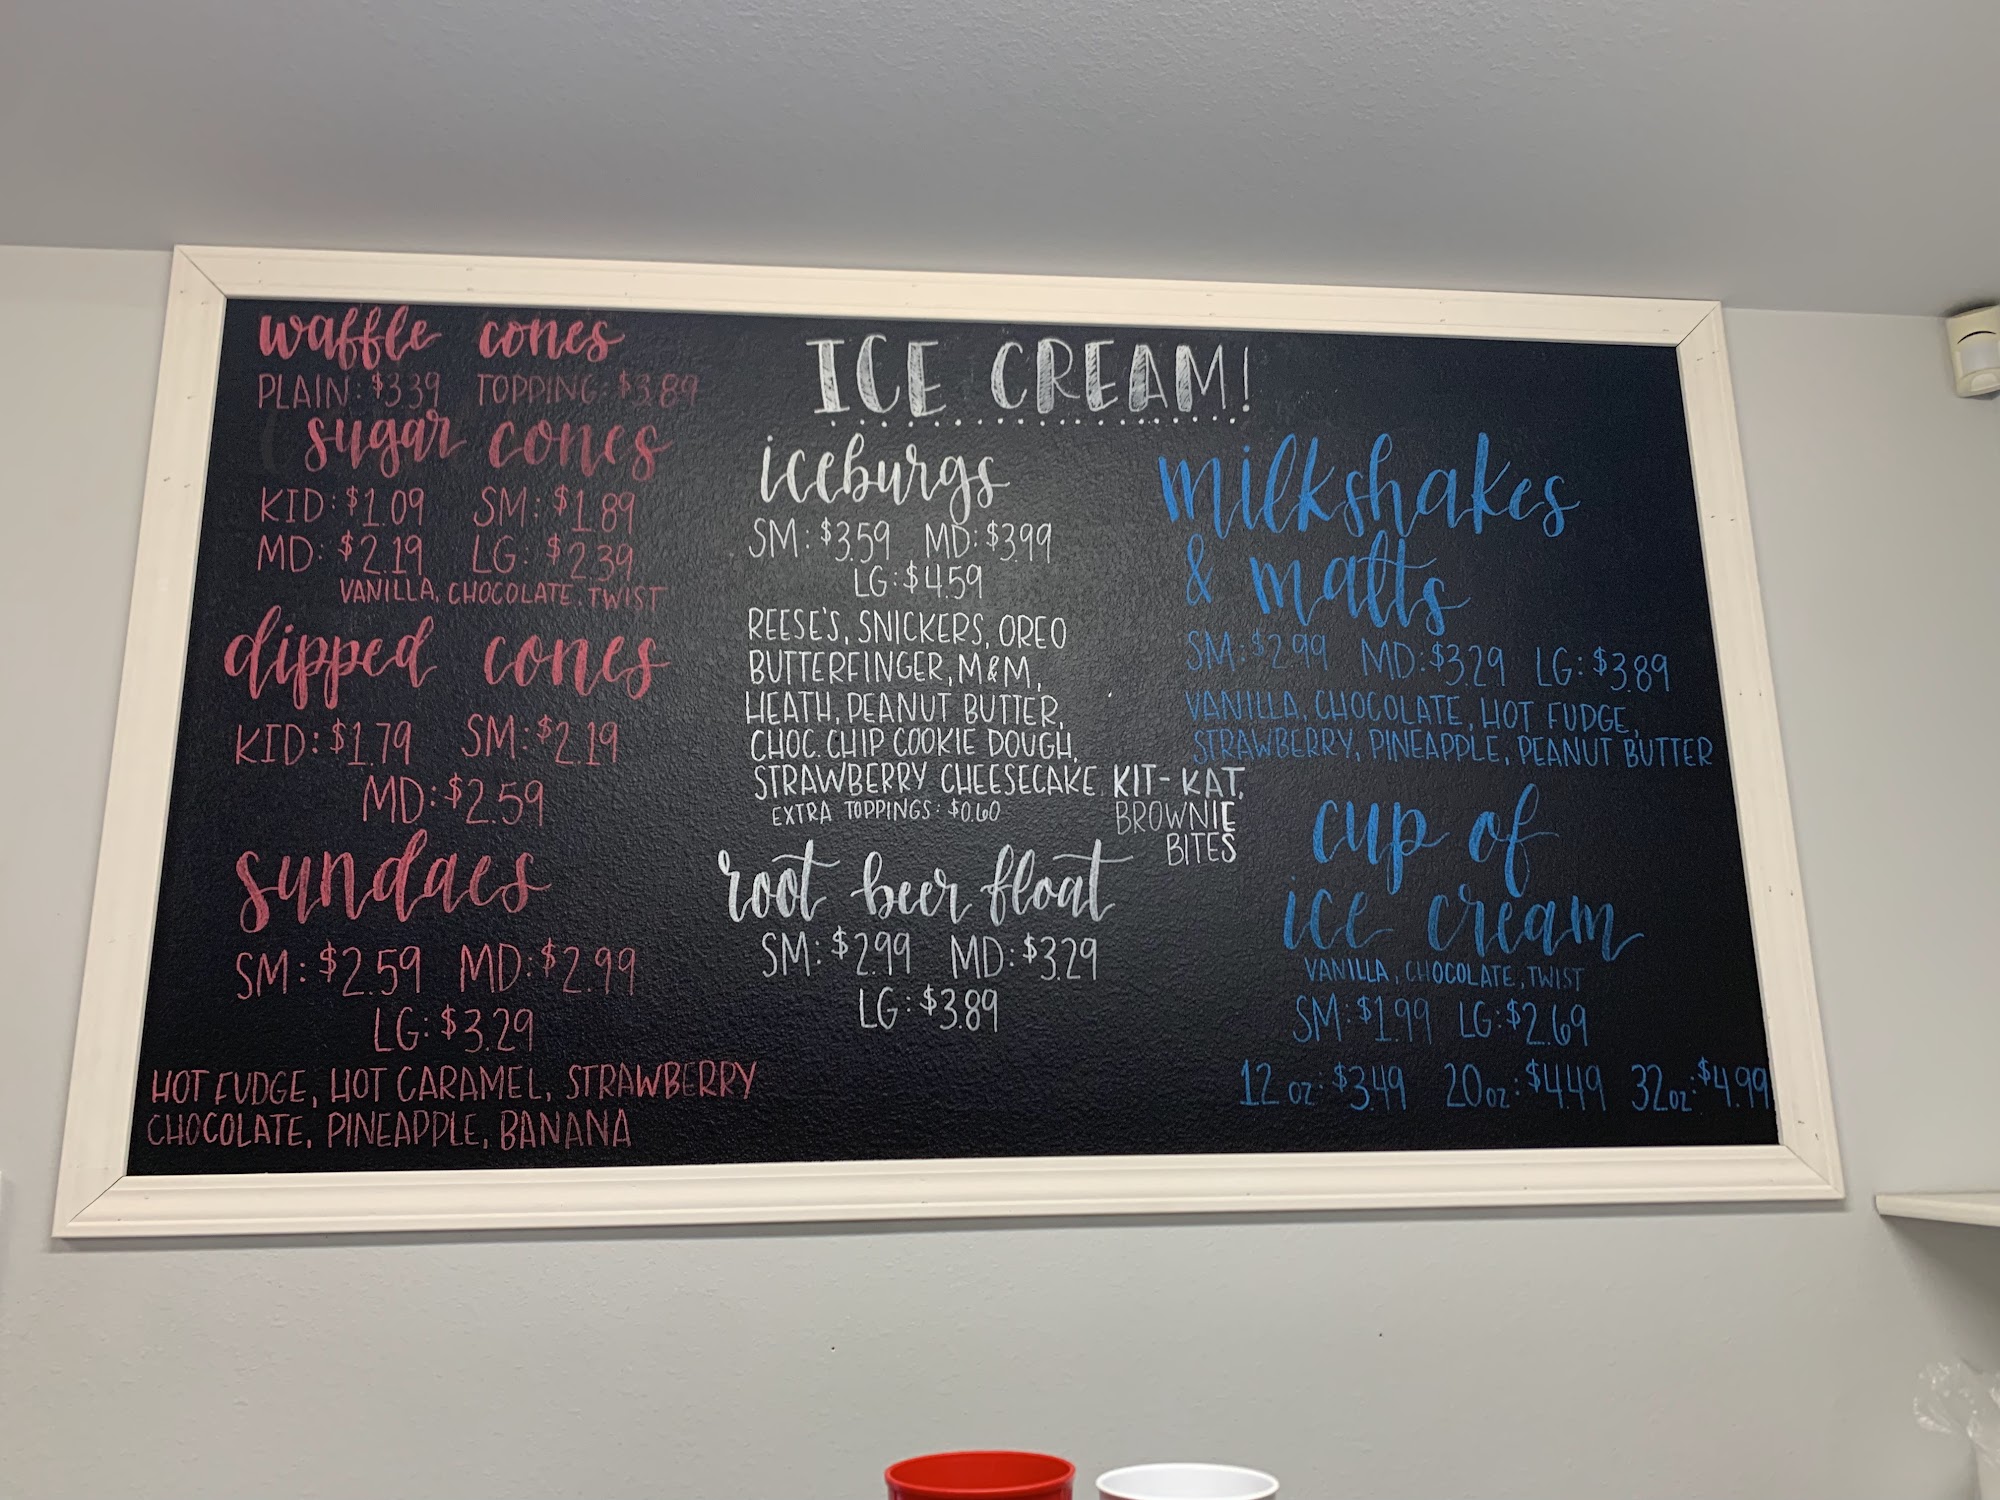 waffle cones
PLAIN: $3.39 TOPPING: $3.89
sugar cones
KID: $1.09 SM: $1.89
MD: $2.19 LG: $2.39
VANILLA, CHOCOLATE, TWIST
dipped cones
KID: $1.79 SM: $2.19
MD: $2.59
sundaes
SM: $2.59 MD: $2.99
LG: $3.29
HOT FUDGE, HOT CARAMEL, STRAWBERRY
CHOCOLATE, PINEAPPLE, BANANA
ICE CREAM!
iceburgs
SM: $3.59 MD: $3.99
LG: $4.59
REESE'S, SNICKERS, OREO
BUTTERFINGER, M&M,
HEATH, PEANUT BUTTER,
CHOC. CHIP COOKIE DOUGH,
STRAWBERRY CHEESECAKE, KIT-KAT,
BROWNIE
BITES
EXTRA TOPPINGS: $0.60
root beer float
SM: $2.99 MD: $3.29
LG: $3.89
milkshakes
& malts
SM: $2.99 MD: $3.29 LG: $3.89
VANILLA, CHOCOLATE, HOT FUDGE,
STRAWBERRY, PINEAPPLE, PEANUT BUTTER
cup of
ice cream
VANILLA, CHOCOLATE, TWIST
SM: $1.99 LG: $2.69
12 oz: $3.49 20oz: $4.49 32oz: $4.99